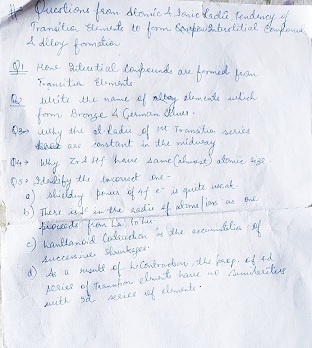 # Questions from Atomic & Ionic Radii Tendency of
Transition Elements to form Interstitial Compounds
& Alloy formation
Q1 How Interstitial Compounds are formed from
Transition Elements
Q2 Write the name of alloy elements which
form Bronze & German Silver.
Q3 Why the at. Radii of 1st Transition series
are constant in the midway
Q4 Why Zr & Hf have same (almost) atomic size
Q5 Identify the incorrect one -
a) Shielding power of 4f e⁻ is quite weak
b) There is in the radii of atoms/ions as one
proceeds from La to Lu
c) Lanthanoid Contraction is the accumulation of
successive shrinkages.
d) As a result of L. Contraction, the prop. of 4d
series of Transition elements have no similarities
with 5d series of elements.